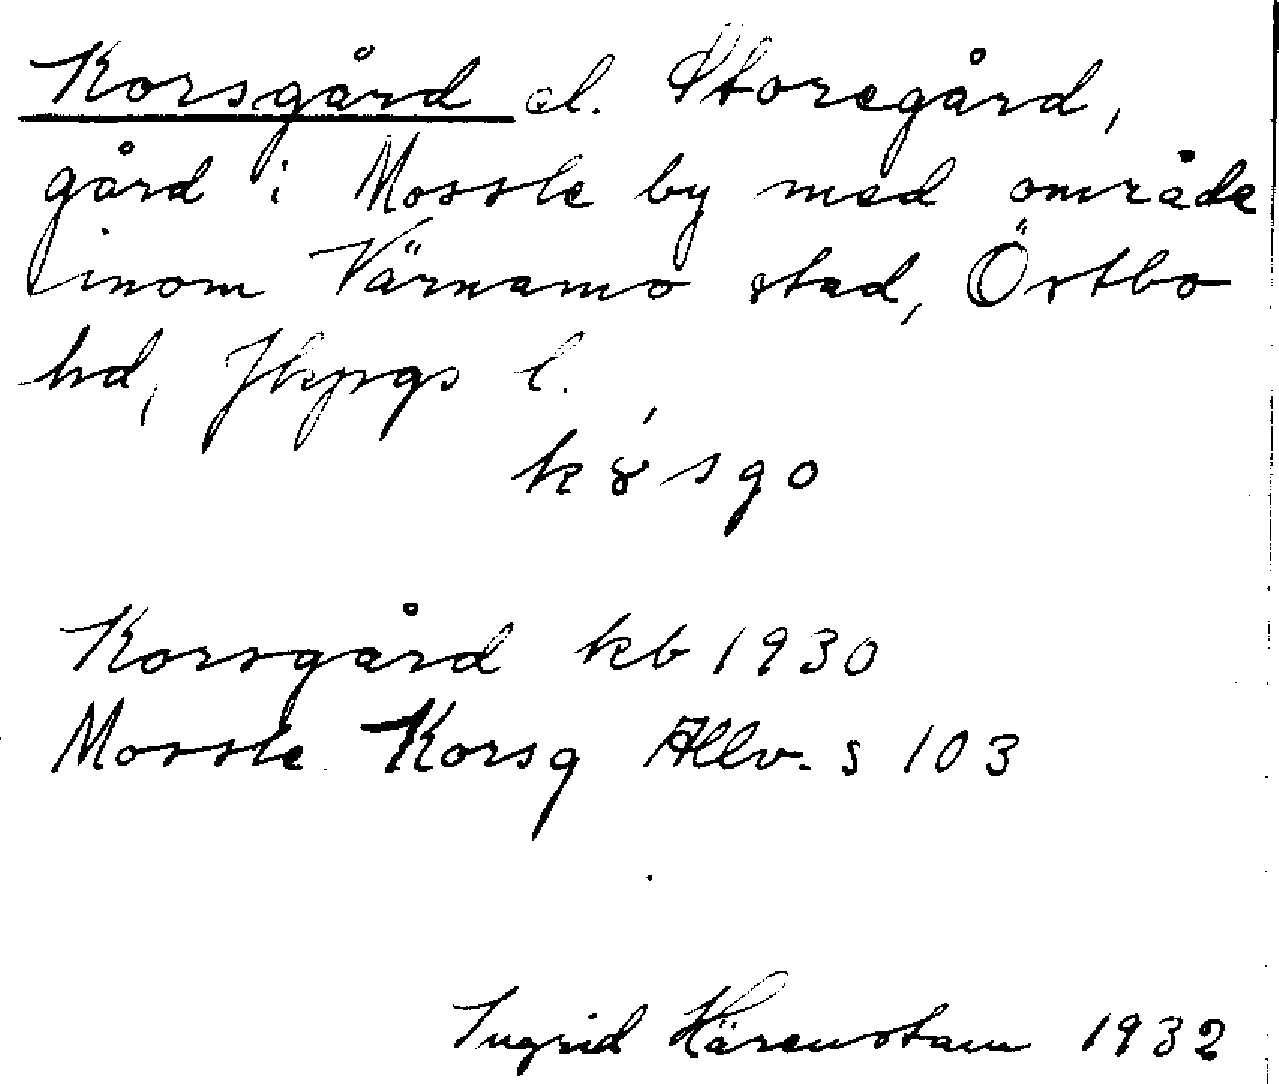 Korsgård el. Storegård,
gård i Mossle by med område
inom Värnamo stad, Östbo
hd, Jkpgs l.
k8́sgo
Korsgård kb 1930
Mossle Korsg Allv. s 103
Ingrid Härenstam 1932